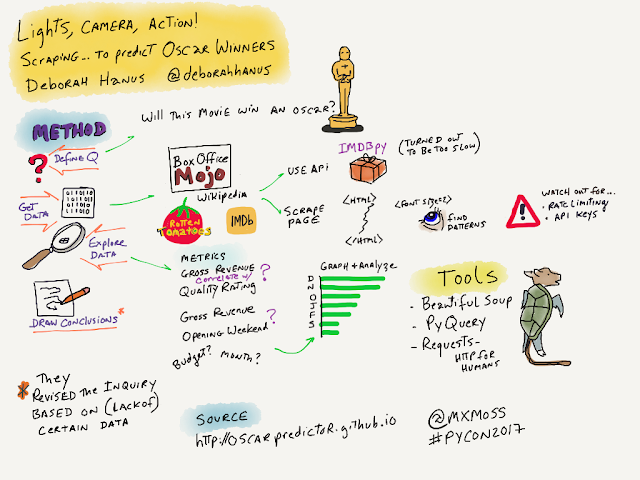 Lights, Camera, Action!
Scraping... to predict Oscar Winners
Deborah Hanus @deborahhanus
METHOD
Will this Movie win an oscar?
? Define Q
Get Data
011010
Explore Data
Draw Conclusions *
Box Office
Mojo
Wikipedia
Rotten
Tomatoes
IMDb
Use API
IMDBpy
(Turned out
to be too slow)
Scrape
Page
<HTML>
</HTML>
<Font Size=?>
Find
Patterns
!
Watch out for...
• Rate limiting
• API Keys
Metrics
Gross Revenue
correlate w/ ?
Quality Rating
Gross Revenue
?
Opening Weekend
Budget? Month?
Graph + Analyze
D
N
O
J
F
S
Tools
- Beautiful Soup
- PyQuery
- Requests-
HTTP for
Humans
* They
Revised the Inquiry
Based on (Lack of)
Certain Data
Source
http://oscarpredictor.github.io
@MXMOSS
#PYCON2017